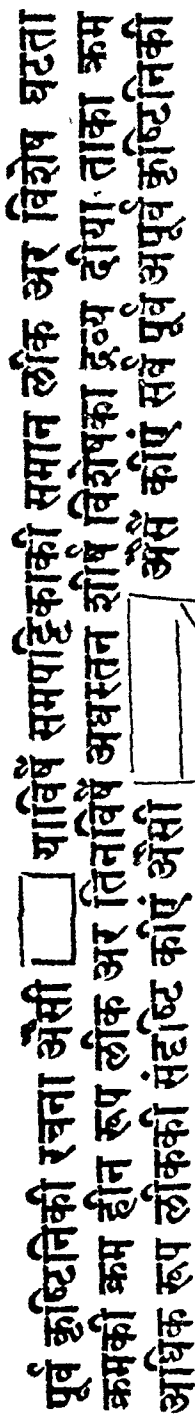 पूर्व कृष्टिनिकी रचना अैसी याविषैं समपट्टिकाकी समान लीक अर विशेष घटता
क्रमकी क्रम हीन रूप लीक अर तिनविषैं अधस्तन शीर्ष विशेषका द्रव्य दीया ताका क्रम
अधिक रूप लीककी संदृष्टि कीएं अैसी अैसें कीएं सर्व पूर्व अपूर्व कृष्टिनिकी